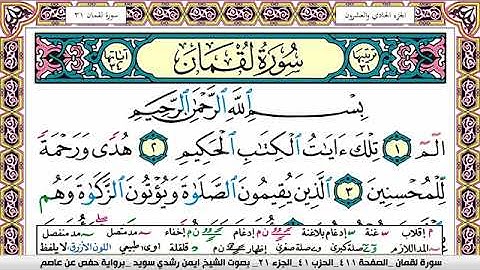 الجزء الحادي والعشرون
سورة لقمان ٣١
سُورَةُ لُقْمَانَ
بِسْمِ اللَّهِ الرَّحْمَٰنِ الرَّحِيمِ
الٓمٓ ١ تِلْكَ ءَايَٰتُ الْكِتَٰبِ الْحَكِيمِ ٢ هُدًى وَرَحْمَةً
لِّلْمُحْسِنِينَ ٣ الَّذِينَ يُقِيمُونَ الصَّلَوٰةَ وَيُؤْتُونَ الزَّكَوٰةَ وَهُم
م إقلاب س غنة إدغام بلاغنة ن م إدغام ن م إخفاء مد متصل مد منفصل
المد اللازم صلة كبرى صلة صغرى إظهار ن م قلقلة اوى طبيعي اللون الأزرق لا يلفظ
سورة لقمان _ الصفحة ٤١١ _ الحزب ٤١ _ الجزء ٢١ _ بصوت الشيخ ايمن رشدي سويد _ برواية حفص عن عاصم